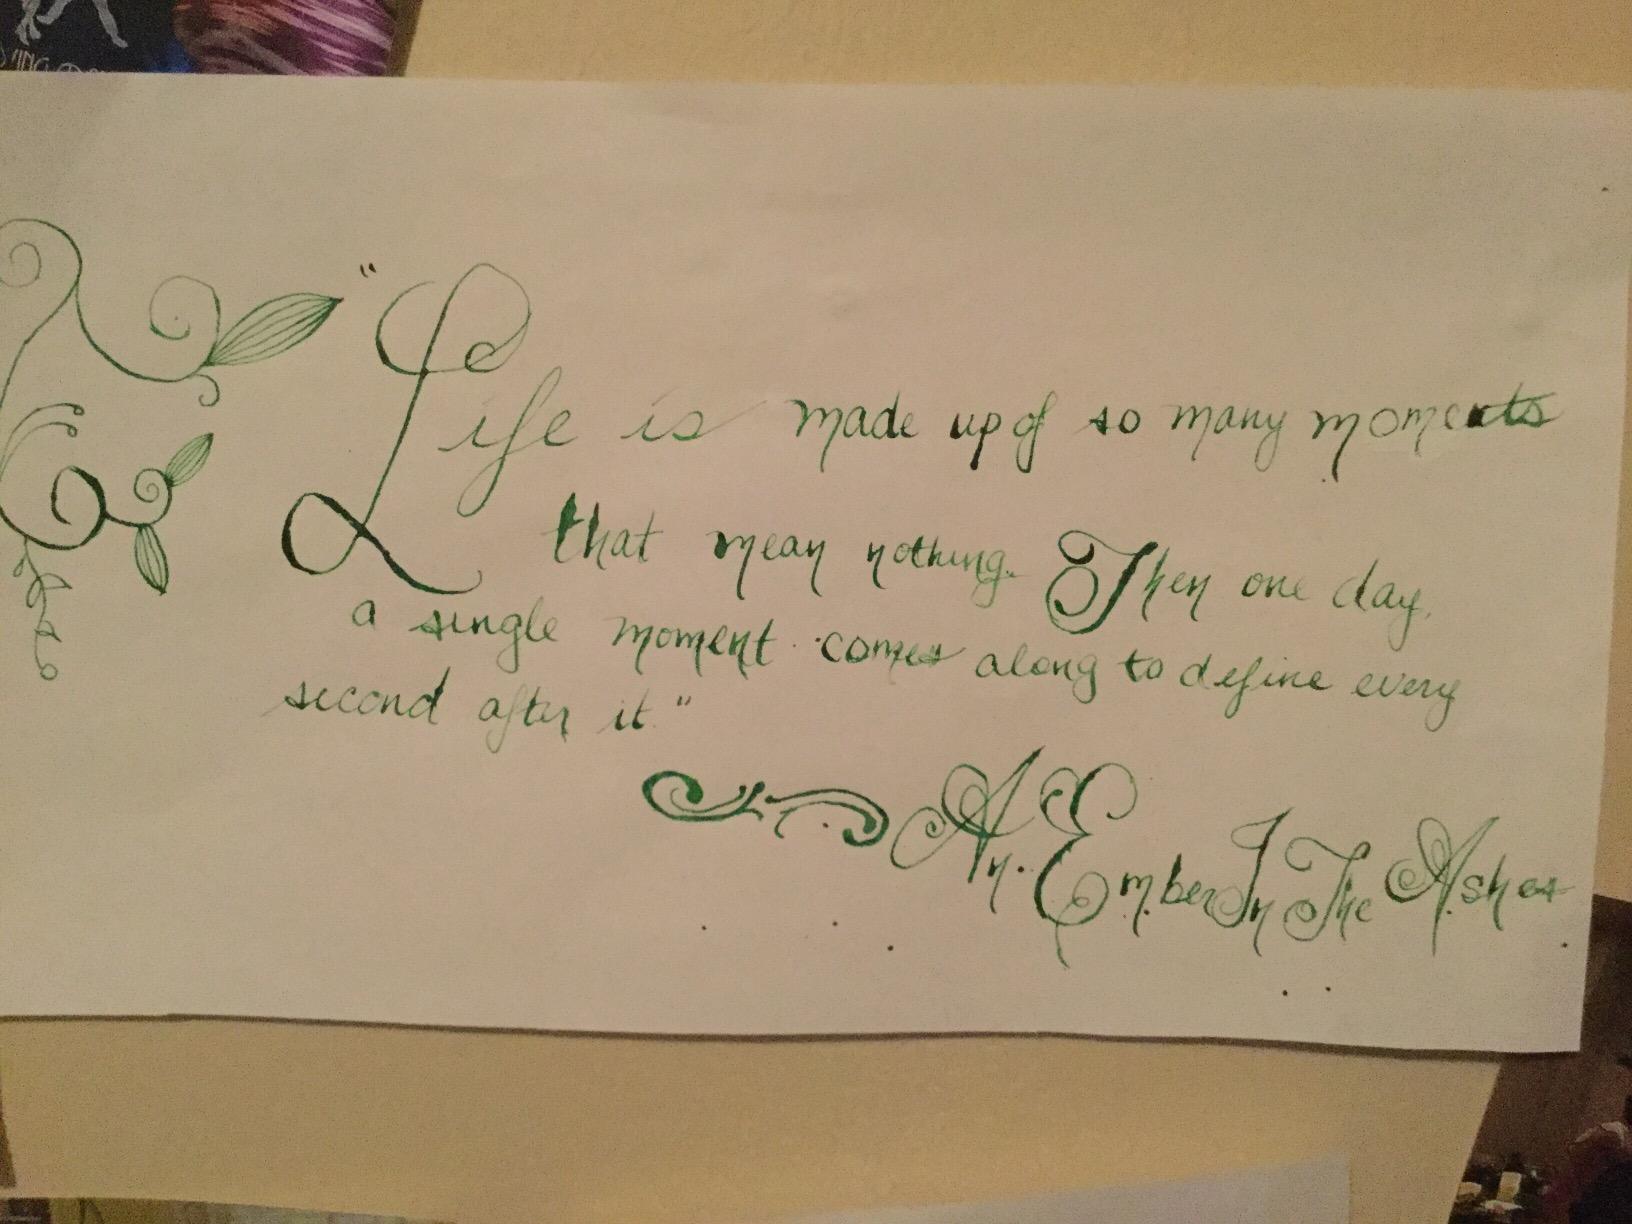 "Life is made up of so many moments
that mean nothing. Then one day,
a single moment comes along to define every
second after it."
An Ember In The Ashes